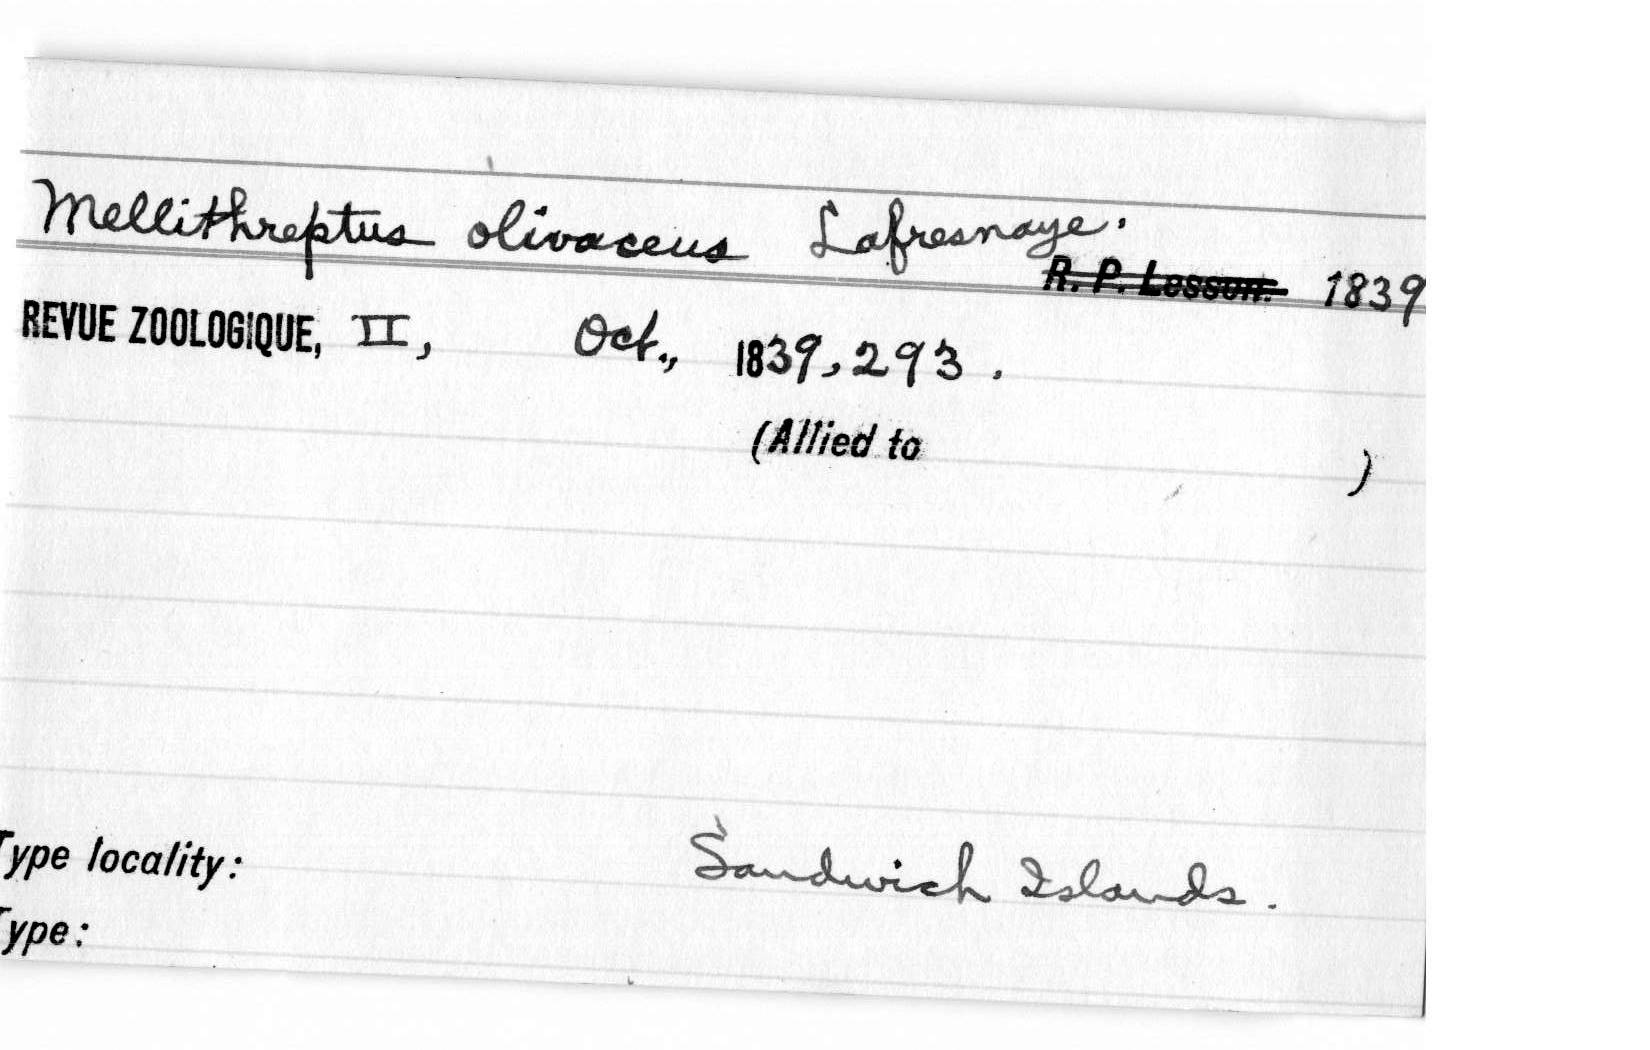 Mellithreptus olivaceus Lafresnaye.
R. P. Lesson. 1839
REVUE ZOOLOGIQUE, II, Oct., 1839, 293.
(Allied to )
Type locality: Sandwich Islands.
Type: